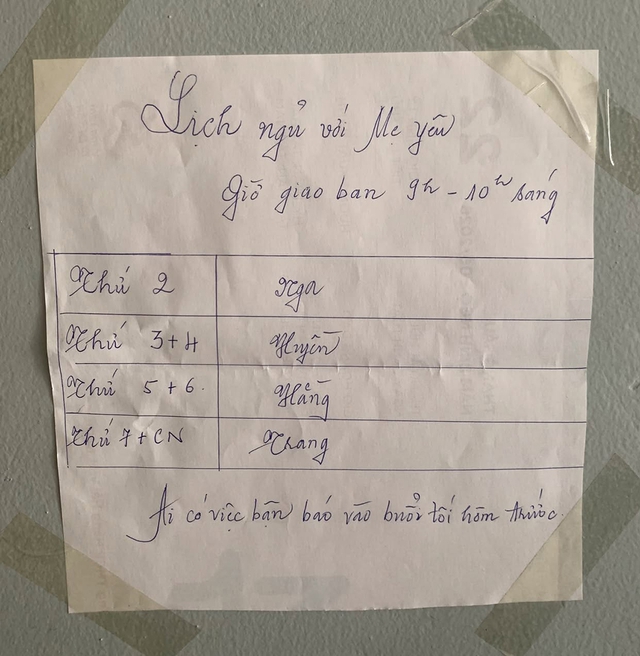 Lịch ngủ với Mẹ yêu
Giờ giao ban 9h - 10h sáng
Thứ 2 Nga
Thứ 3+4 Huyền
Thứ 5+6. Hằng
Thứ 7+CN Trang
Ai có việc bận báo vào buổi tối hôm trước.